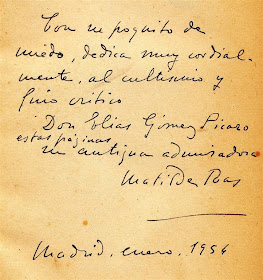 Con un poquito de
miedo, dedica muy cordial-
mente, al cultísimo y
fino crítico
Don Elias Gómez Picazo
estas páginas
su antigua admiradora
Matilde Ras
Madrid, enero, 1954